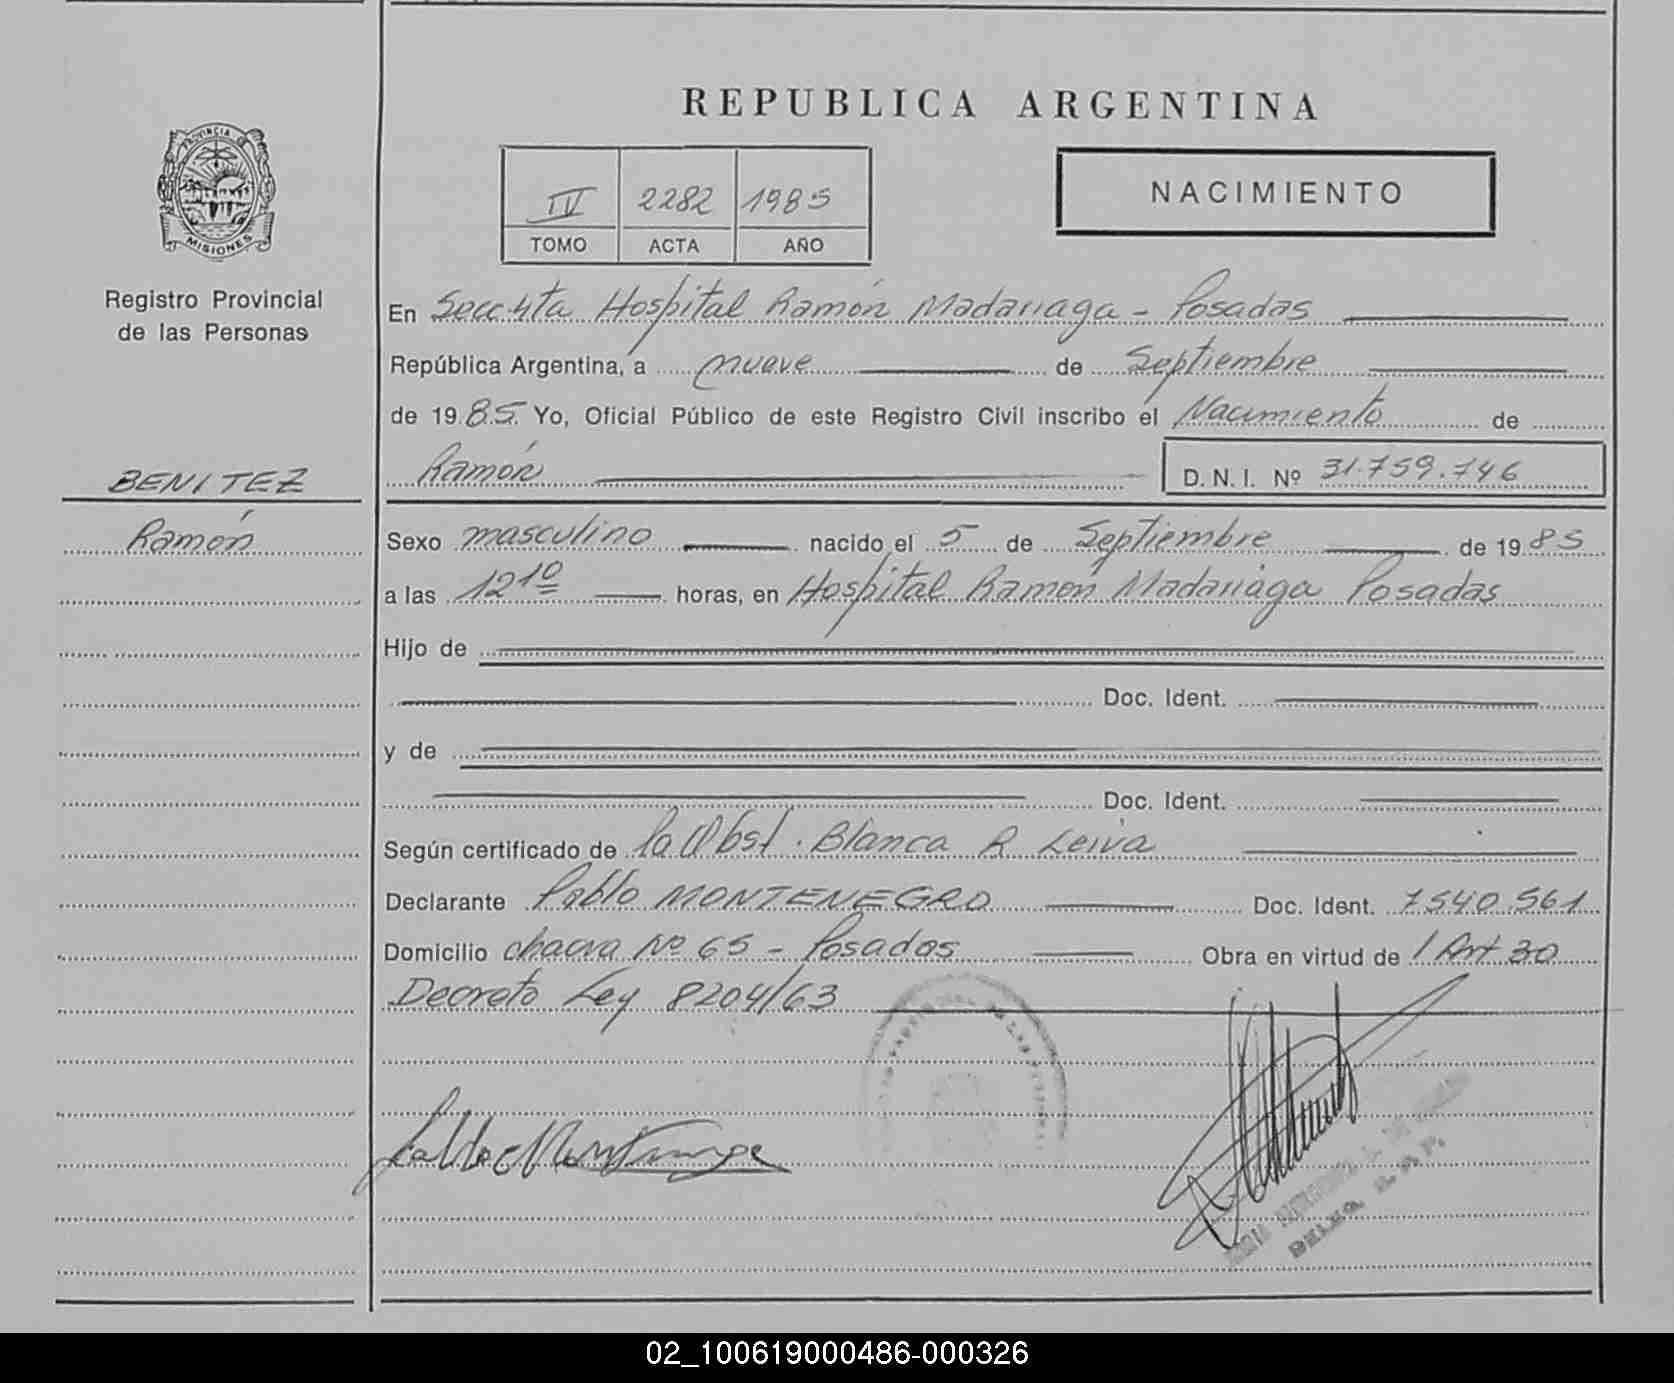 REPUBLICA ARGENTINA
PROVINCIA DE
MISIONES
Registro Provincial
de las Personas
IV 2282 1985
TOMO ACTA AÑO
NACIMIENTO
En Secc 4ta Hospital Ramón Madariaga - Posadas
República Argentina, a nueve de Septiembre
de 1985. Yo, Oficial Público de este Registro Civil inscribo el Nacimiento de
BENITEZ
Ramón
Ramón D. N. I. Nº 31.759.746
Sexo masculino nacido el 5 de Septiembre de 1985
a las 12 10 horas, en Hospital Ramón Madariaga Posadas
Hijo de
Doc. Ident.
y de
Doc. Ident.
Según certificado de la Obst. Blanca R Leiva
Declarante Pablo MONTENEGRO Doc. Ident. 7540561
Domicilio chacra Nº 65 - Posadas Obra en virtud de / Art 30
Decreto Ley 8204/63
DELEG. R. P.
02_100619000486-000326